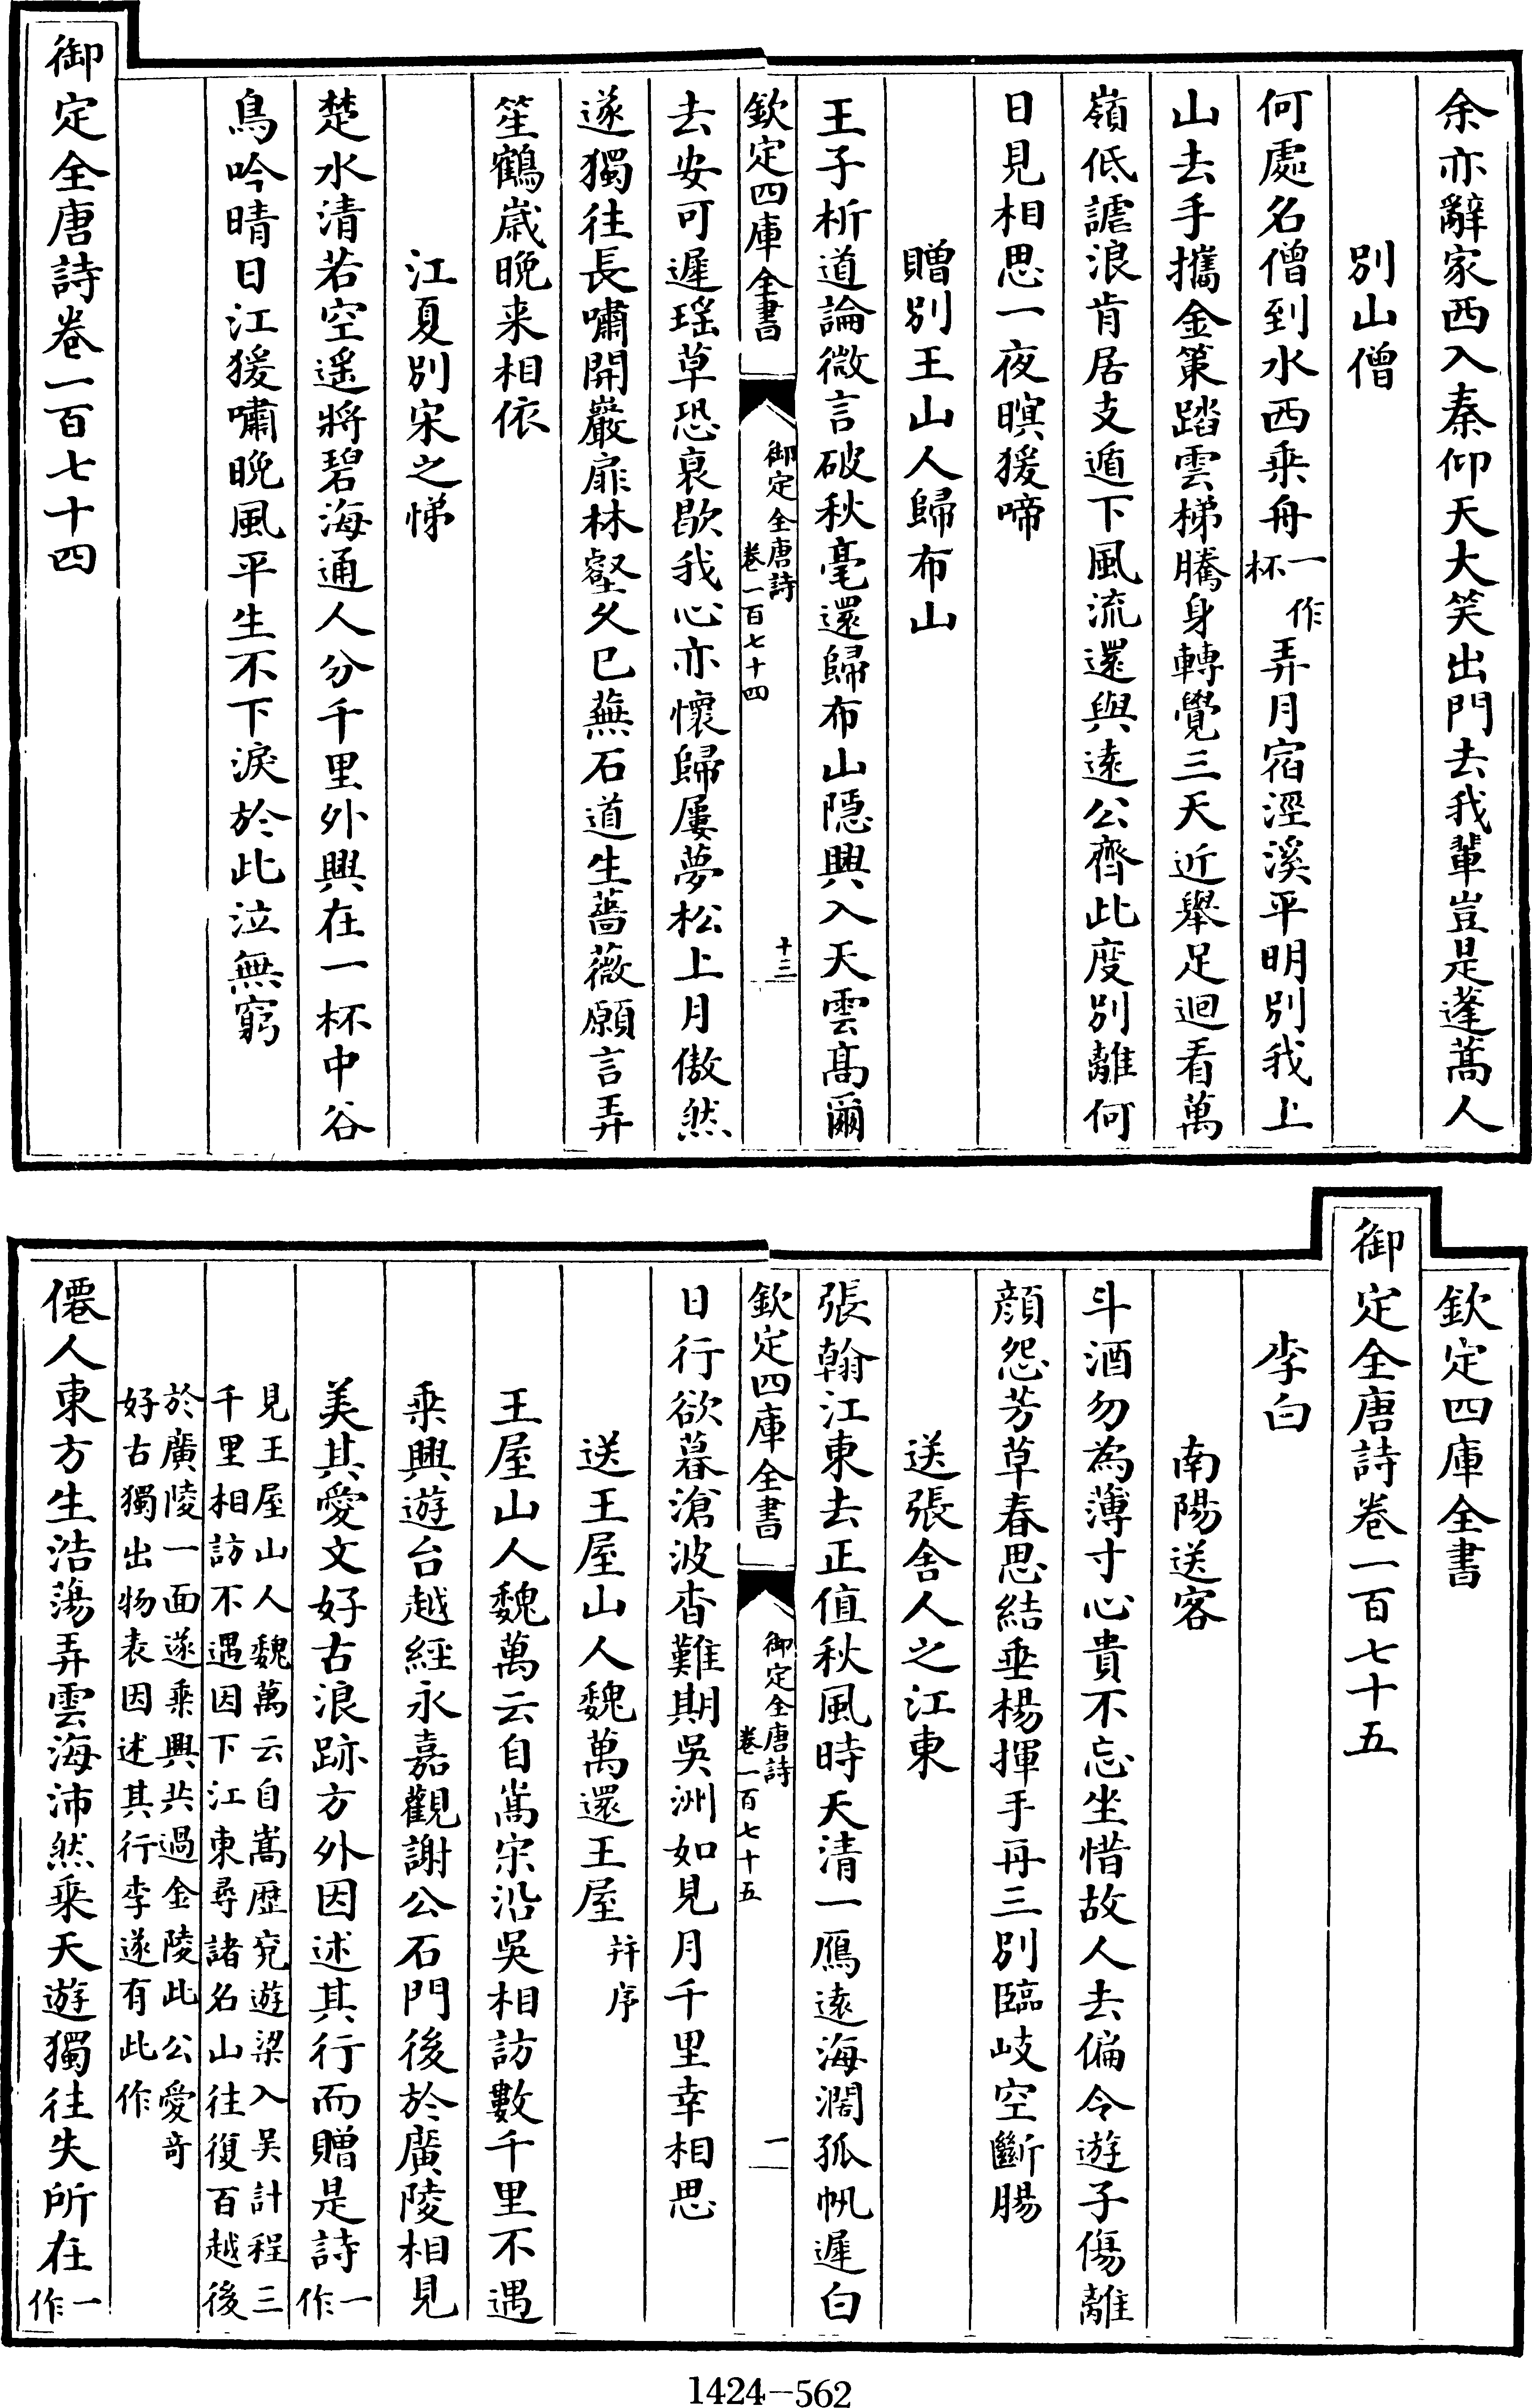 余亦辭家西入秦仰天大笑出門去我輩豈是蓬蒿人
別山僧
何處名僧到水西乘舟一作杯弄月宿涇溪平明別我上
山去手攜金策踏雲梯騰身轉覺三天近舉足迴看萬
嶺低謔浪肯居支遁下風流還與遠公齊此度別離何
日見相思一夜暝猨啼
贈別王山人歸布山
王子析道論微言破秋毫還歸布山隱興入天雲高爾
欽定四庫全書
御定全唐詩
卷一百七十四
十三
去安可遲瑤草恐衰歇我心亦懷歸屢夢松上月傲然
遂獨往長嘯開巖扉林壑久已蕪石道生薔薇願言弄
笙鶴歲晚來相依
江夏別宋之悌
楚水清若空遙將碧海通人分千里外興在一杯中谷
鳥吟晴日江猨嘯晚風平生不下淚於此泣無窮
御定全唐詩卷一百七十四
欽定四庫全書
御定全唐詩卷一百七十五
李白
南陽送客
斗酒勿為薄寸心貴不忘坐惜故人去偏令遊子傷離
顏怨芳草春思結垂楊揮手再三別臨岐空斷腸
送張舍人之江東
張翰江東去正值秋風時天清一鴈遠海濶孤帆遲白
欽定四庫全書
御定全唐詩
卷一百七十五
一
日行欲暮滄波杳難期吳洲如見月千里幸相思
送王屋山人魏萬還王屋并序
王屋山人魏萬云自嵩宋沿吳相訪數千里不遇
乘興遊台越經永嘉觀謝公石門後於廣陵相見
美其愛文好古浪跡方外因述其行而贈是詩一作
見王屋山人魏萬云自嵩歷兗遊梁入吳計程三
千里相訪不遇因下江東尋諸名山往復百越後
於廣陵一面遂乘興共過金陵此公愛奇
好古獨出物表因述其行李遂有此作
僊人東方生浩蕩弄雲海沛然乘天遊獨往失所在一作
1424-562